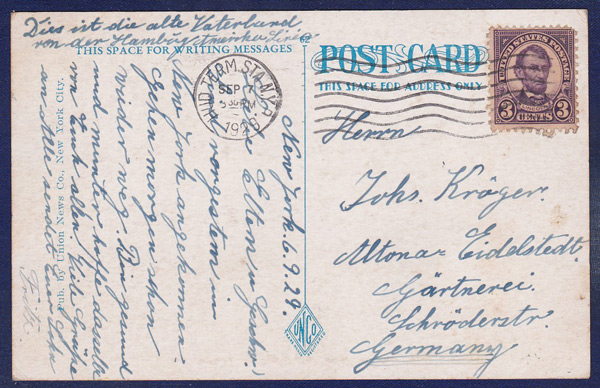 Dies ist die alte Vaterland
von der Hamburg Amerika Linie
THIS SPACE FOR WRITING MESSAGES
POST CARD
THIS SPACE FOR ADDRESS ONLY
HUD. TERM. STA. N.Y.
SEP 7
1928
UNITED STATES POSTAGE
LINCOLN
3 CENTS 3
New York, 6.9.29.
L. Eltern u. Geschw.!
Vorgestern in
New York angekommen
Gehn morgen schon
wieder weg. Bin gesund
und munter hoffe dasselbe
von Euch allen. Viele Grüße
an Alle sendet Euer Sohn
Fritz
Herrn
Johs. Kröger.
Altona-Eidelstedt.
Gärtnerei.
Schröderstr.
Germany
Pub. by Union News Co., New York City.
UNCO